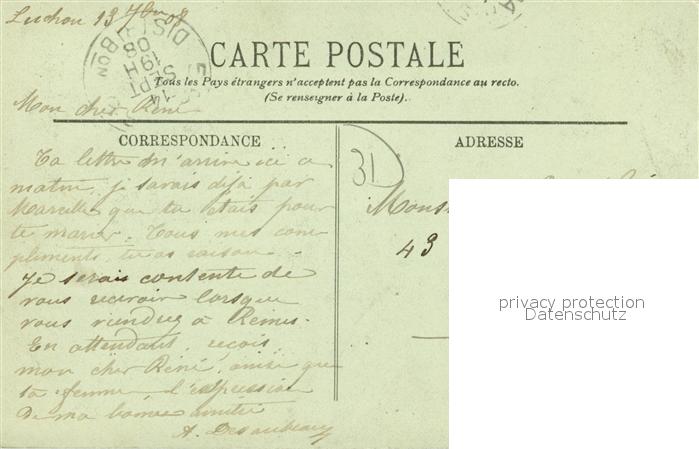 Luchon 13 7bre 08
CARTE POSTALE
Tous les Pays étrangers n'acceptent pas la Correspondance au recto.
(Se renseigner à la Poste).
Mon cher René
CORRESPONDANCE
ADRESSE
31
Ta lettre m'arrive ici ce
matin, je savais déjà par
Marcelle que tu étais pour
te marier. Tous mes com
pliments, tu as raison.
Je serais contente de
vous recevoir lorsque
vous viendrez à Reims.
En attendant, reçois
mon cher René, ainsi que
ta femme, l'expression
De ma bonne amitié
A.
Mons
43
privacy protection
Datenschutz